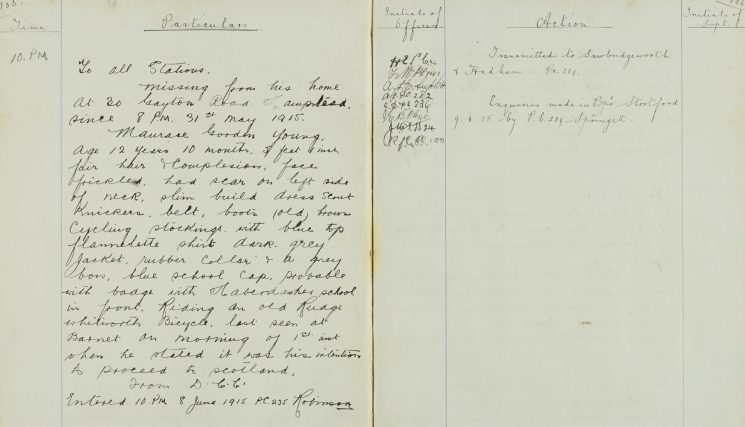 108.
Time
Particulars
Initials of
Officers
Action
Initials of
Supt.
10. P.M
To all Stations.
missing from his home
At 20 Gayton Road Hampstead
since 8 P.M. 31st May 1915.
Maurase Gorden Young.
Age 12 years 10 months, 5 feet
fair hair & Complesion, face
frickled, had scar on left side
of neck, slim build dress Scout
Knickers, belt, boots (old) brown
Cycling stockings with blue top
flannelette shirt dark grey
Jacket, rubber Collar & a grey
bow, blue school Cap, probable
with badge with Haberdasher school
in front, Riding an old Rudge
Whitworth Bicycle, last seen at
Barnet on morning of 1st inst
when he stated it was his intention
to proceed to scotland,
From D.C.C.
Entered 10 P.M. 8 June 1915 P.C. 235 Robinson
Transmitted to Sawbridgeworth
& Hadham. Pc. 214.
Enquiries made in Bp's Stortford
9.6.15 by P.C. 214 Springett.